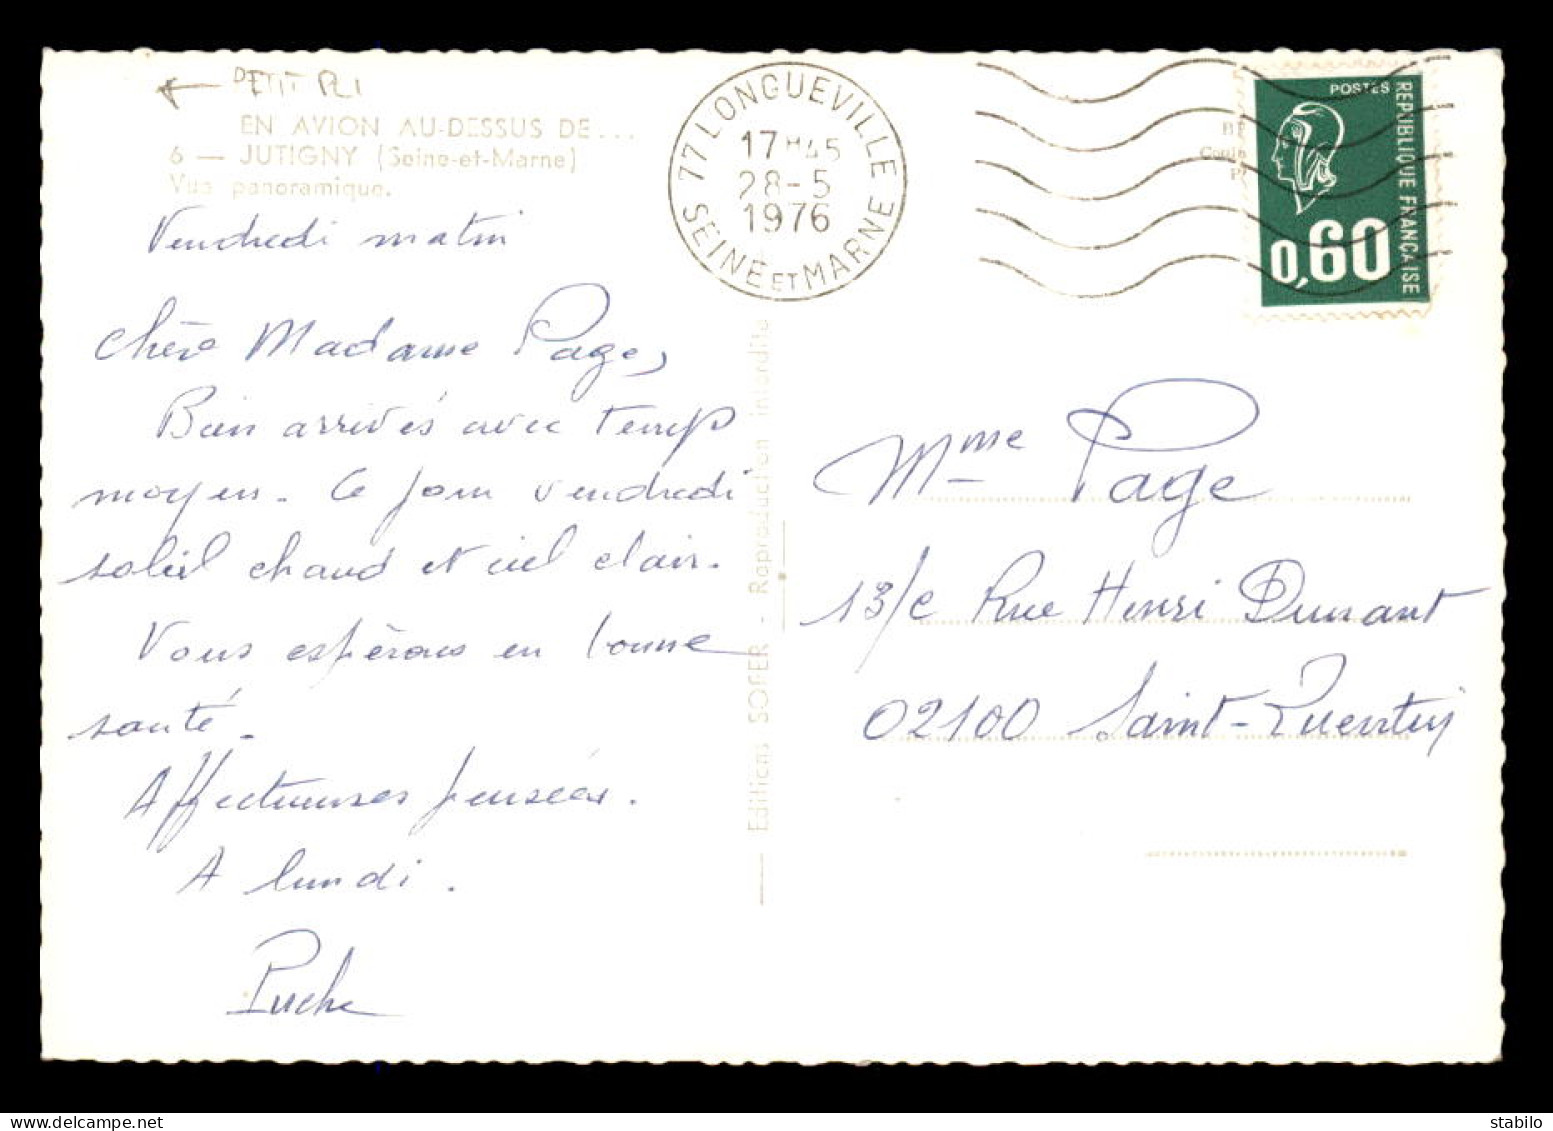 ← PETIT PLI
EN AVION AU-DESSUS DE...
6 — JUTIGNY (Seine-et-Marne)
Vue panoramique.
Vendredi matin
Chère Madame Page,
Bien arrivés avec temps
moyen. Ce jour vendredi
soleil chaud et ciel clair.
Vous espérons en bonne
santé.
Affectueuses pensées.
A lundi.
77 LONGUEVILLE
17H45
28-5
1976
SEINE ET MARNE
POSTES
REPUBLIQUE FRANÇAISE
0,60
Editions SOFER - Reproduction interdite
Mme Page
13/c Rue Henri Dunant
02100 Saint-Quentin
delcampe.net
stabilo